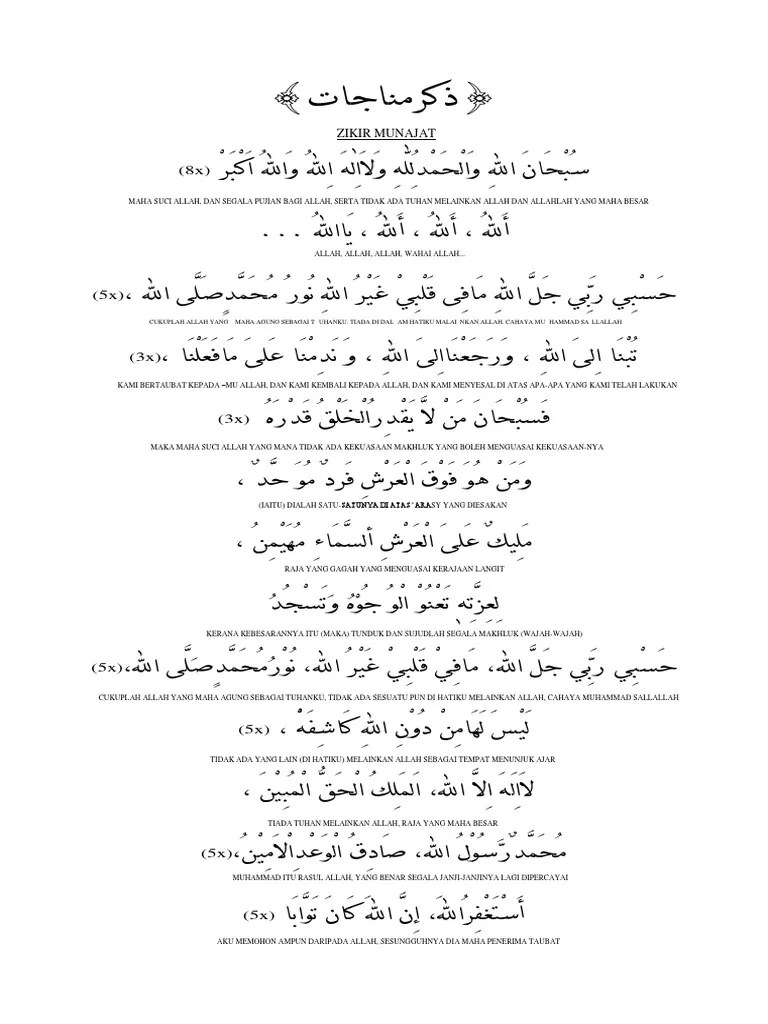 ذكر مناجات
ZIKIR MUNAJAT
سُبْحَانَ اللهِ وَالْحَمْدُ لِلّٰهِ وَلَاإِلٰهَ اِلاَّ اللهُ وَاللهُ اَكْبَرْ (8x)
MAHA SUCI ALLAH, DAN SEGALA PUJIAN BAGI ALLAH, SERTA TIDAK ADA TUHAN MELAINKAN ALLAH DAN ALLAHLAH YANG MAHA BESAR
أَللهُ ، أَللهُ ، أَللهُ ، يَااللهُ . . .
ALLAH, ALLAH, ALLAH, WAHAI ALLAH...
حَسْبِيْ رَبِّيْ جَلَّ اللهِ مَافِى قَلْبِيْ غَيْرُ اللهِ نُوْرُ مُحَمَّدٍ صَلَّى الله ، (5x)
CUKUPLAH ALLAH YANG MAHA AGUNG SEBAGAI T UHANKU. TIADA DI DAL AM HATIKU MALAI NKAN ALLAH. CAHAYA MU HAMMAD SA LLALLAH
تُبْنَا اِلىَ اللهِ ، وَرَجَعْنَااِلىَ اللهِ ، وَنَدِمْنَا عَلىَ مَافَعَلْنَا ، (3x)
KAMI BERTAUBAT KEPADA –MU ALLAH, DAN KAMI KEMBALI KEPADA ALLAH, DAN KAMI MENYESAL DI ATAS APA-APA YANG KAMI TELAH LAKUKAN
فَسُبْحَانَ مَنْ لاَّ يَقْدِرُالْخَلْقُ قَدْرَهُ (3x)
MAKA MAHA SUCI ALLAH YANG MANA TIDAK ADA KEKUASAAN MAKHLUK YANG BOLEH MENGUASAI KEKUASAAN-NYA
وَمَنْ هُوَ فَوْقَ الْعَرْشِ فَرْدٌ مُوَحَّدٌ ،
(IAITU) DIALAH SATU-SATUNYA DI ATAS 'ARASY YANG DIESAKAN
مَلِيْكٌ عَلىَ الْعَرْشِ ألسَّمَاءِ مُهَيْمِنُ ،
RAJA YANG GAGAH YANG MENGUASAI KERAJAAN LANGIT
لِعِزَّتِهِ تَعْنُوالْوُجُوْهُ وَتَسْجُدُ
KERANA KEBESARANNYA ITU (MAKA) TUNDUK DAN SUJUDLAH SEGALA MAKHLUK (WAJAH-WAJAH)
حَسْبِيْ رَبِّيْ جَلَّ الله، مَافِيْ قَلْبِيْ غَيْرُ الله، نُوْرُمُحَمَّدٍ صَلَّى الله، (5x)
CUKUPLAH ALLAH YANG MAHA AGUNG SEBAGAI TUHANKU, TIDAK ADA SESUATU PUN DI HATIKU MELAINKAN ALLAH, CAHAYA MUHAMMAD SALLALLAH
لَيْسَ لَهَامِنْ دُوْنِ اللهِ كَاشِفَهْ ، (5x)
TIDAK ADA YANG LAIN (DI HATIKU) MELAINKAN ALLAH SEBAGAI TEMPAT MENUNJUK AJAR
لاَاِلَهَ اِلاَّ الله، اَلْمَلِكُ الْحَقُّ الْمُبِيْن ،
TIADA TUHAN MELAINKAN ALLAH, RAJA YANG MAHA BESAR
مُحَمَّدٌ رَّسُوْلُ الله، صَادِقُ الْوَعْدِالْاَمِيْنُ، (5x)
MUHAMMAD ITU RASUL ALLAH, YANG BENAR SEGALA JANJI-JANJINYA LAGI DIPERCAYAI
أَسْتَغْفِرُالله، إِنَّ اللهَ كَانَ تَوَّابَا (5x)
AKU MEMOHON AMPUN DARIPADA ALLAH, SESUNGGUHNYA DIA MAHA PENERIMA TAUBAT